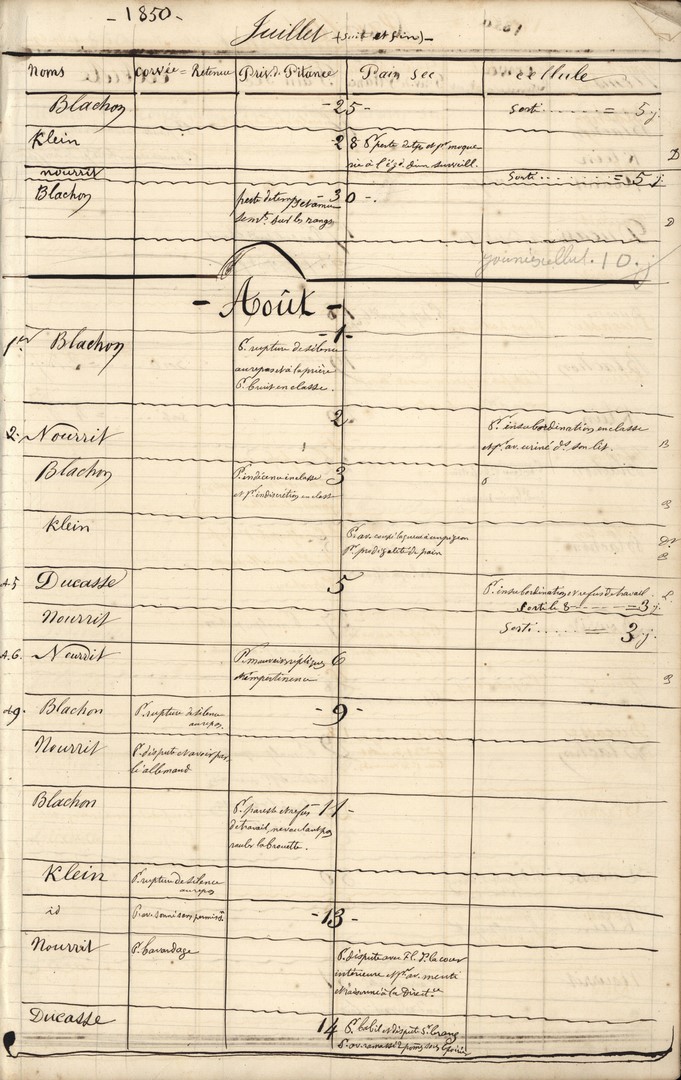 - 1850 -
Juillet (suit et fin) -
Noms Corvée = Retenue Priv. de Pitance Pain sec Cellule
- 25 -
Blachon Sorti ...... = 5 j.
Klein 28 Pr. perte de tps et pr. moque
rie à l'ég. d'un surveill. D
nourrit Sorti ...... = 5 j
Blachon perte de temps et amu - 30 -
semt. sur les rangs D
10. j
- Août -
- 1 -
1er Blachon Pr. rupture de silence
au repas et à la prière
Pr. bruit en classe.
2
2. Nourrit Pr. insubordination en classe
et pr. av. uriné ds. son lit. B
Blachon Pr. indécence in classe 3
et pr. indiscrétion en classe B
Klein Pr. av.
Pr. prodigalité de pain
5
A.5 Ducasse Pr. insubordination et refus de travail
Sorti le 8 ------ = 3 j.
Nourrit Sorti ..... = 3 j.
A.6. Nourrit Pr. mauvaises répliques 6
et impertinence B
A9. Blachon Pr. rupture de silence - 9 -
au repas.
Nourrit Pr. dispute et avoir par
lé allemand
Blachon Pr. paresse et refus 11 -
de travail, ne voulant pas
rouler la brouette.
Klein Pr. rupture de silence
au repos
id Pr. av. sonné sans permissn. - 13 -
Nourrit Pr. bavardage Pr. dispute avec Fl. Pr. la cour
intérieure et pr. av. menti
et raisonné à la Directce
Ducasse 14 Pr. babil et dispute sr. le rang
Pr. av. ramassé 2 poms sous le poirier